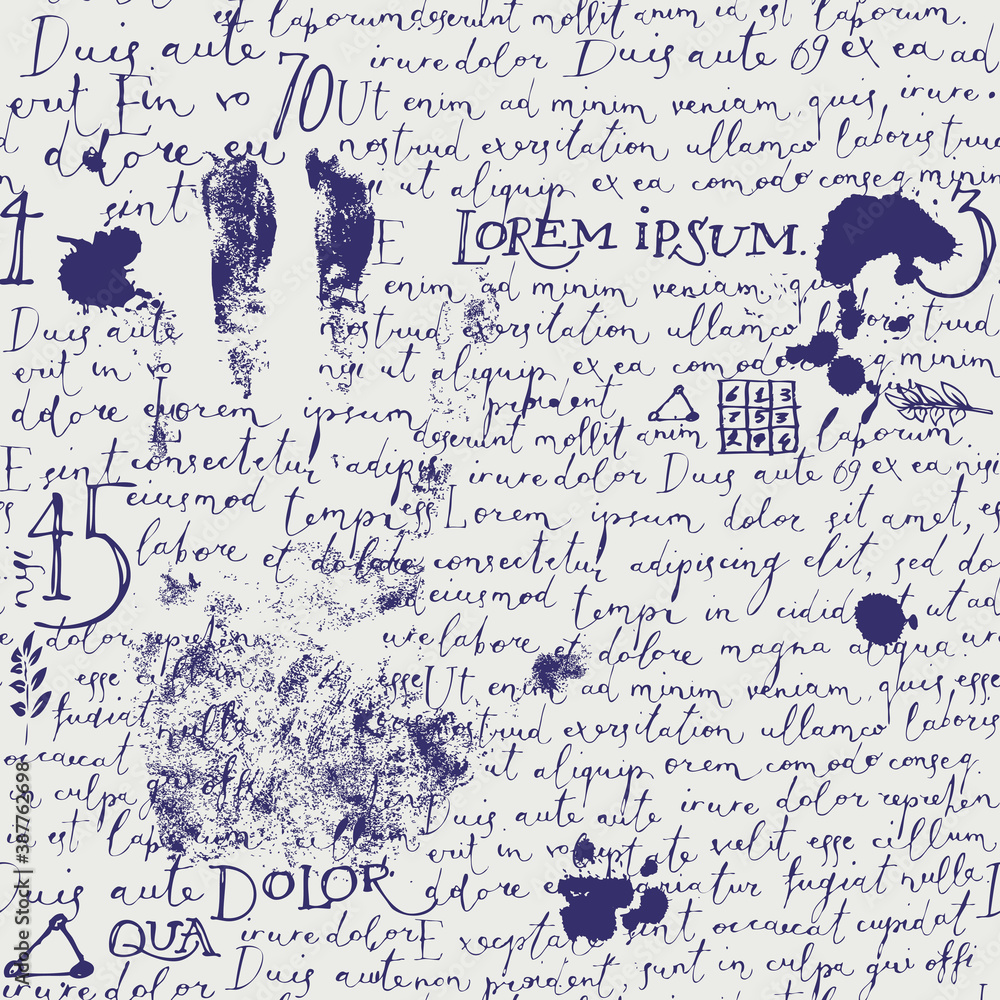 est laborum deserunt mollit anim id est laborum.
Duis aute irure dolor Duis aute 69 ex ea ad
erit Ein vo 70 Ut enim ad minim veniam, quis, irure.
dolore eu nostrud exersitation ullamco laboris
sint ut aliquip ex ea comodo conseq minim
4 E LOREM iPSUM. 3
enim ad minim veniam
Duis aute nostrud exersitation ullamco laboris trud
erit in vo nisi ut aliquip ex ea comodo q minim
dolore eu orem ipsum proident 6 1 3
7 5 3
deserunt mollit anim laborum.
E sint consectetur adipis irure dolor Duis aute 69 ex ea nisi
45 eiusmod tempi esse Lorem ipsum dolor sit amet, es
nisi labore et dolore consectetur adipiscing elit, sed do
eiusmod tempi in cidid t ut ad
dolor reprehen ure labore et dolore magna aliqua
esse cillum esse Ut enim ad minim veniam, quis, esse
fugiat nulla nostrud exersitation ullamco laboris
occaecat ut aliquip orem comodo conseq.
culpa qui offi Duis aute aute irure dolor reprehen
est laborum cillum erit in voluptate velit esse cillum
Duis aute DOLOR dolore eu ariatur fugiat nulla
QUA irure dolore E xceptare sint occaecat cupidat
irure dolor Duis aute non proident, sunt in culpa qui offi
Adobe Stock | #387762698